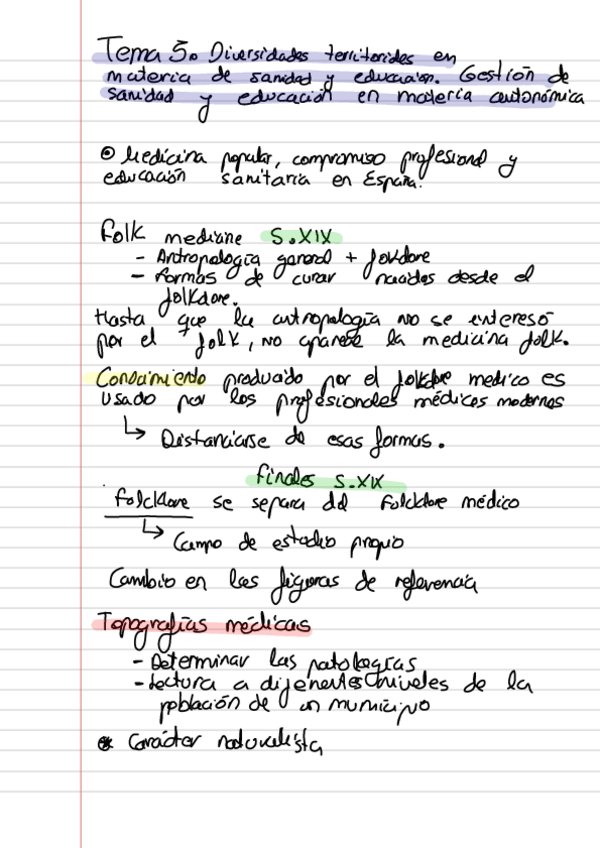 Tema 5. Diversidades territoriales en
materia de sanidad y educación. Gestión de
sanidad y educación en materia autonómica
Medicina popular, compromiso profesional y
educación sanitaria en España.
Folk medicine S.XIX
- Antropología general + folklore
- Formas de curar nacidas desde el
folklore.
Hasta que la antropología no se interesó
por el folk, no aparece la medicina folk.
Conocimiento producido por el folklore medico es
usado por los profesionales médicos modernos
↳ Distanciarse de esas formas.
finales S.XIX
Folcklore se separa del Folcklore médico
↳ Campo de estudio propio
Cambio en las figuras de referencia
Topografías médicas
- Determinar las patologías
- Lectura a diferentes niveles de la
población de un municipio
* Carácter naturalista